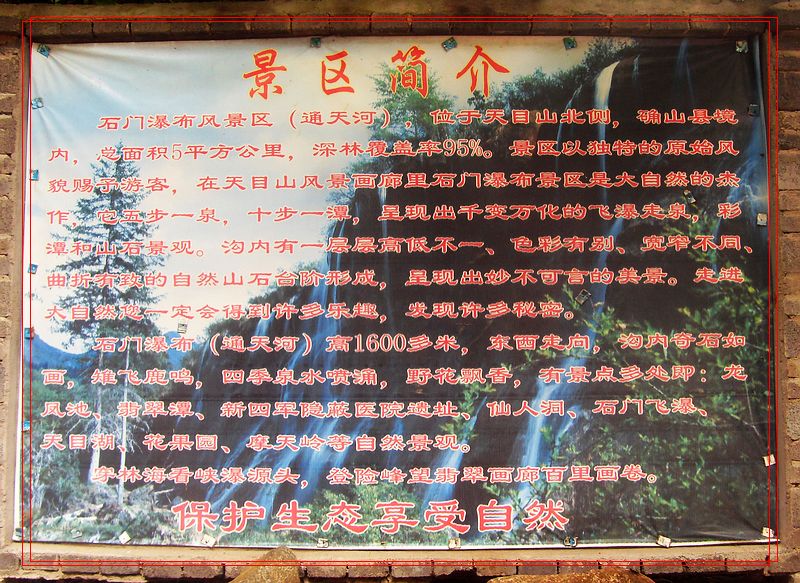 景区简介
石门瀑布风景区（通天河），位于天目山北侧，确山县境
内，总面积5平方公里，深林覆盖率95%。景区以独特的原始风
貌赐予游客，在天目山风景画廊里石门瀑布景区是大自然的杰
作，它五步一泉，十步一潭，呈现出千变万化的飞瀑走泉，彩
潭和山石景观。沟内有一层层高低不一、色彩有别、宽窄不同、
曲折有致的自然山石台阶形成，呈现出妙不可言的美景。走进
大自然您一定会得到许多乐趣，发现许多秘密。
石门瀑布（通天河）高1600多米，东西走向，沟内奇石如
画，雉飞鹿鸣，四季泉水喷涌，野花飘香，有景点多处即：龙
凤池、翡翠潭、新四军隐蔽医院遗址、仙人洞、石门飞瀑、
天目湖、花果园、摩天岭等自然景观。
穿林海看峡瀑源头，登险峰望翡翠画廊百里画卷。
保护生态享受自然